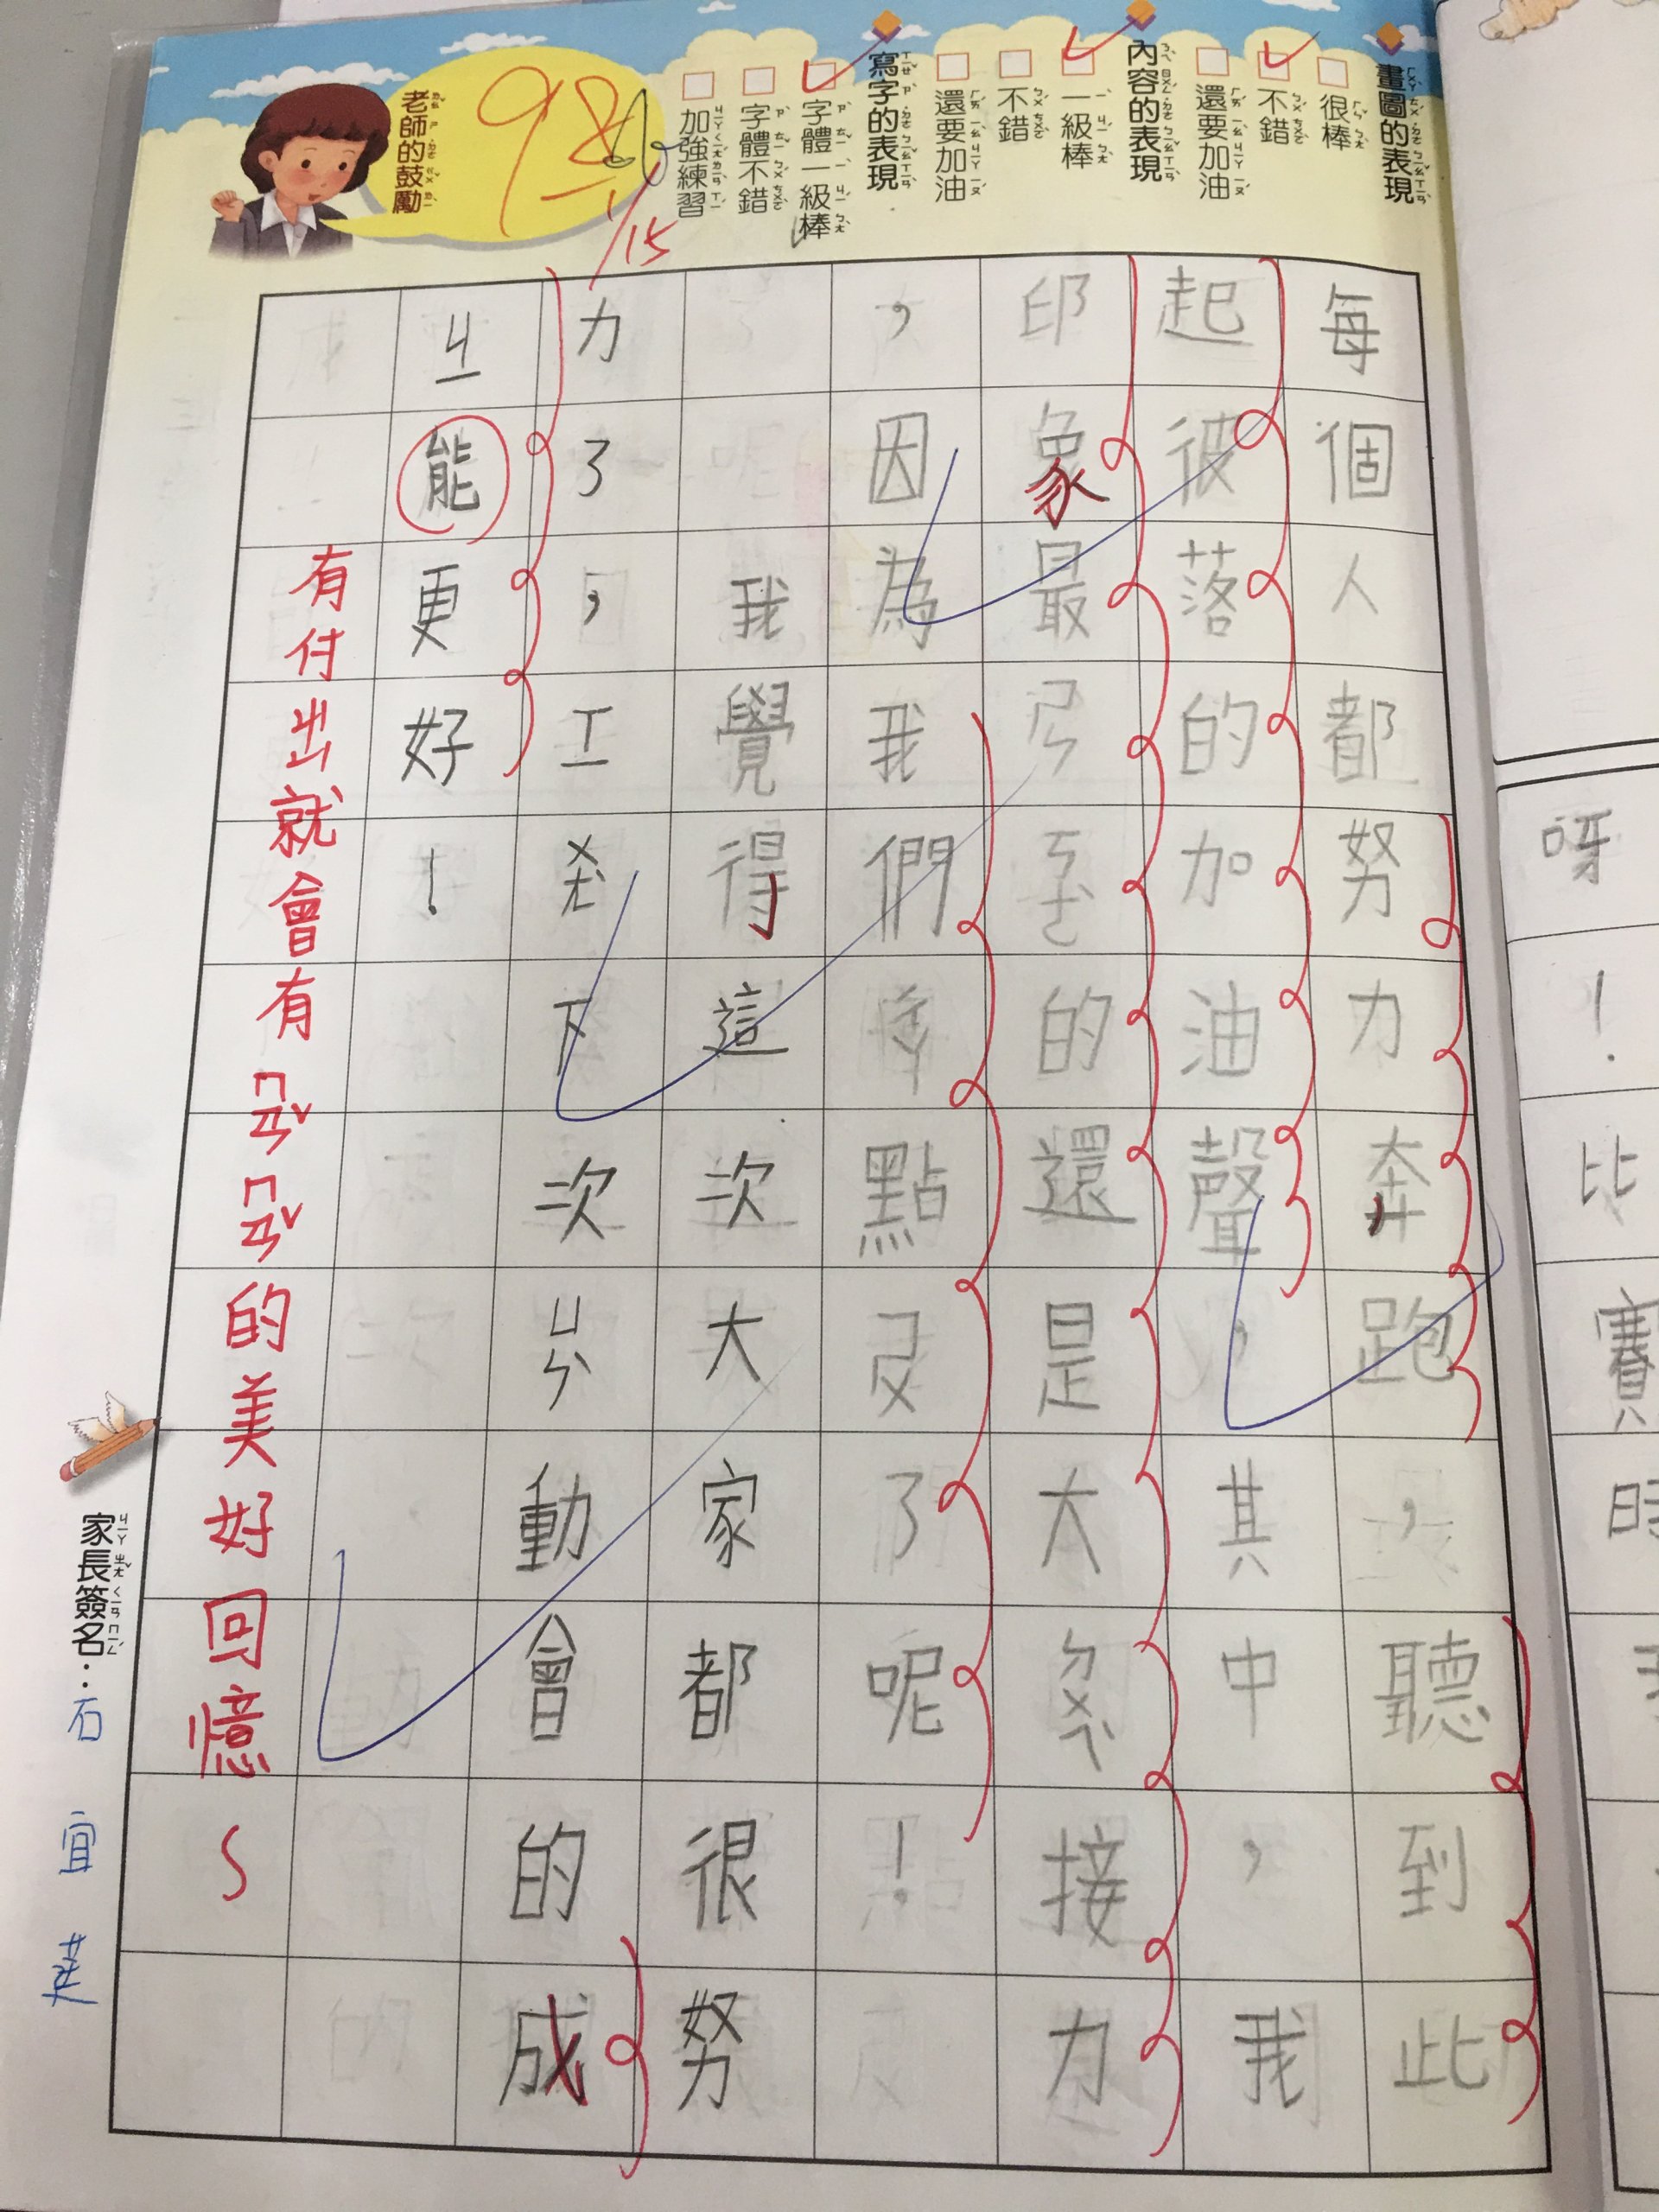 畫圖的表現
很棒
不錯
還要加油
內容的表現
一級棒
不錯
還要加油
寫字的表現
字體一級棒
字體不錯
加強練習
老師的鼓勵
98
1/15
每個人都努力奔跑，聽到此
起彼落的加油聲，其中，我
印象最ㄕㄣㄎㄜ的還是大ㄉㄨㄟ接力
，因為我們點了呢！
我覺得這次大家都很努
力了，ㄒㄧㄨㄤ下次ㄩㄣ動會的成
ㄐㄧ能更好！
有付出就會有ㄇㄢˇㄇㄢˇ的美好回憶~
家長簽名：石宜
呀！比賽時